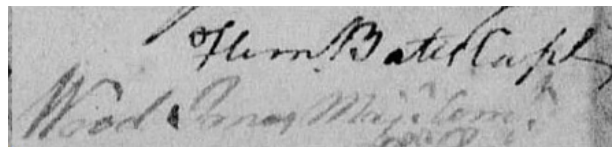 Flem. Bates Capt
Wood Jones Maj. Com.